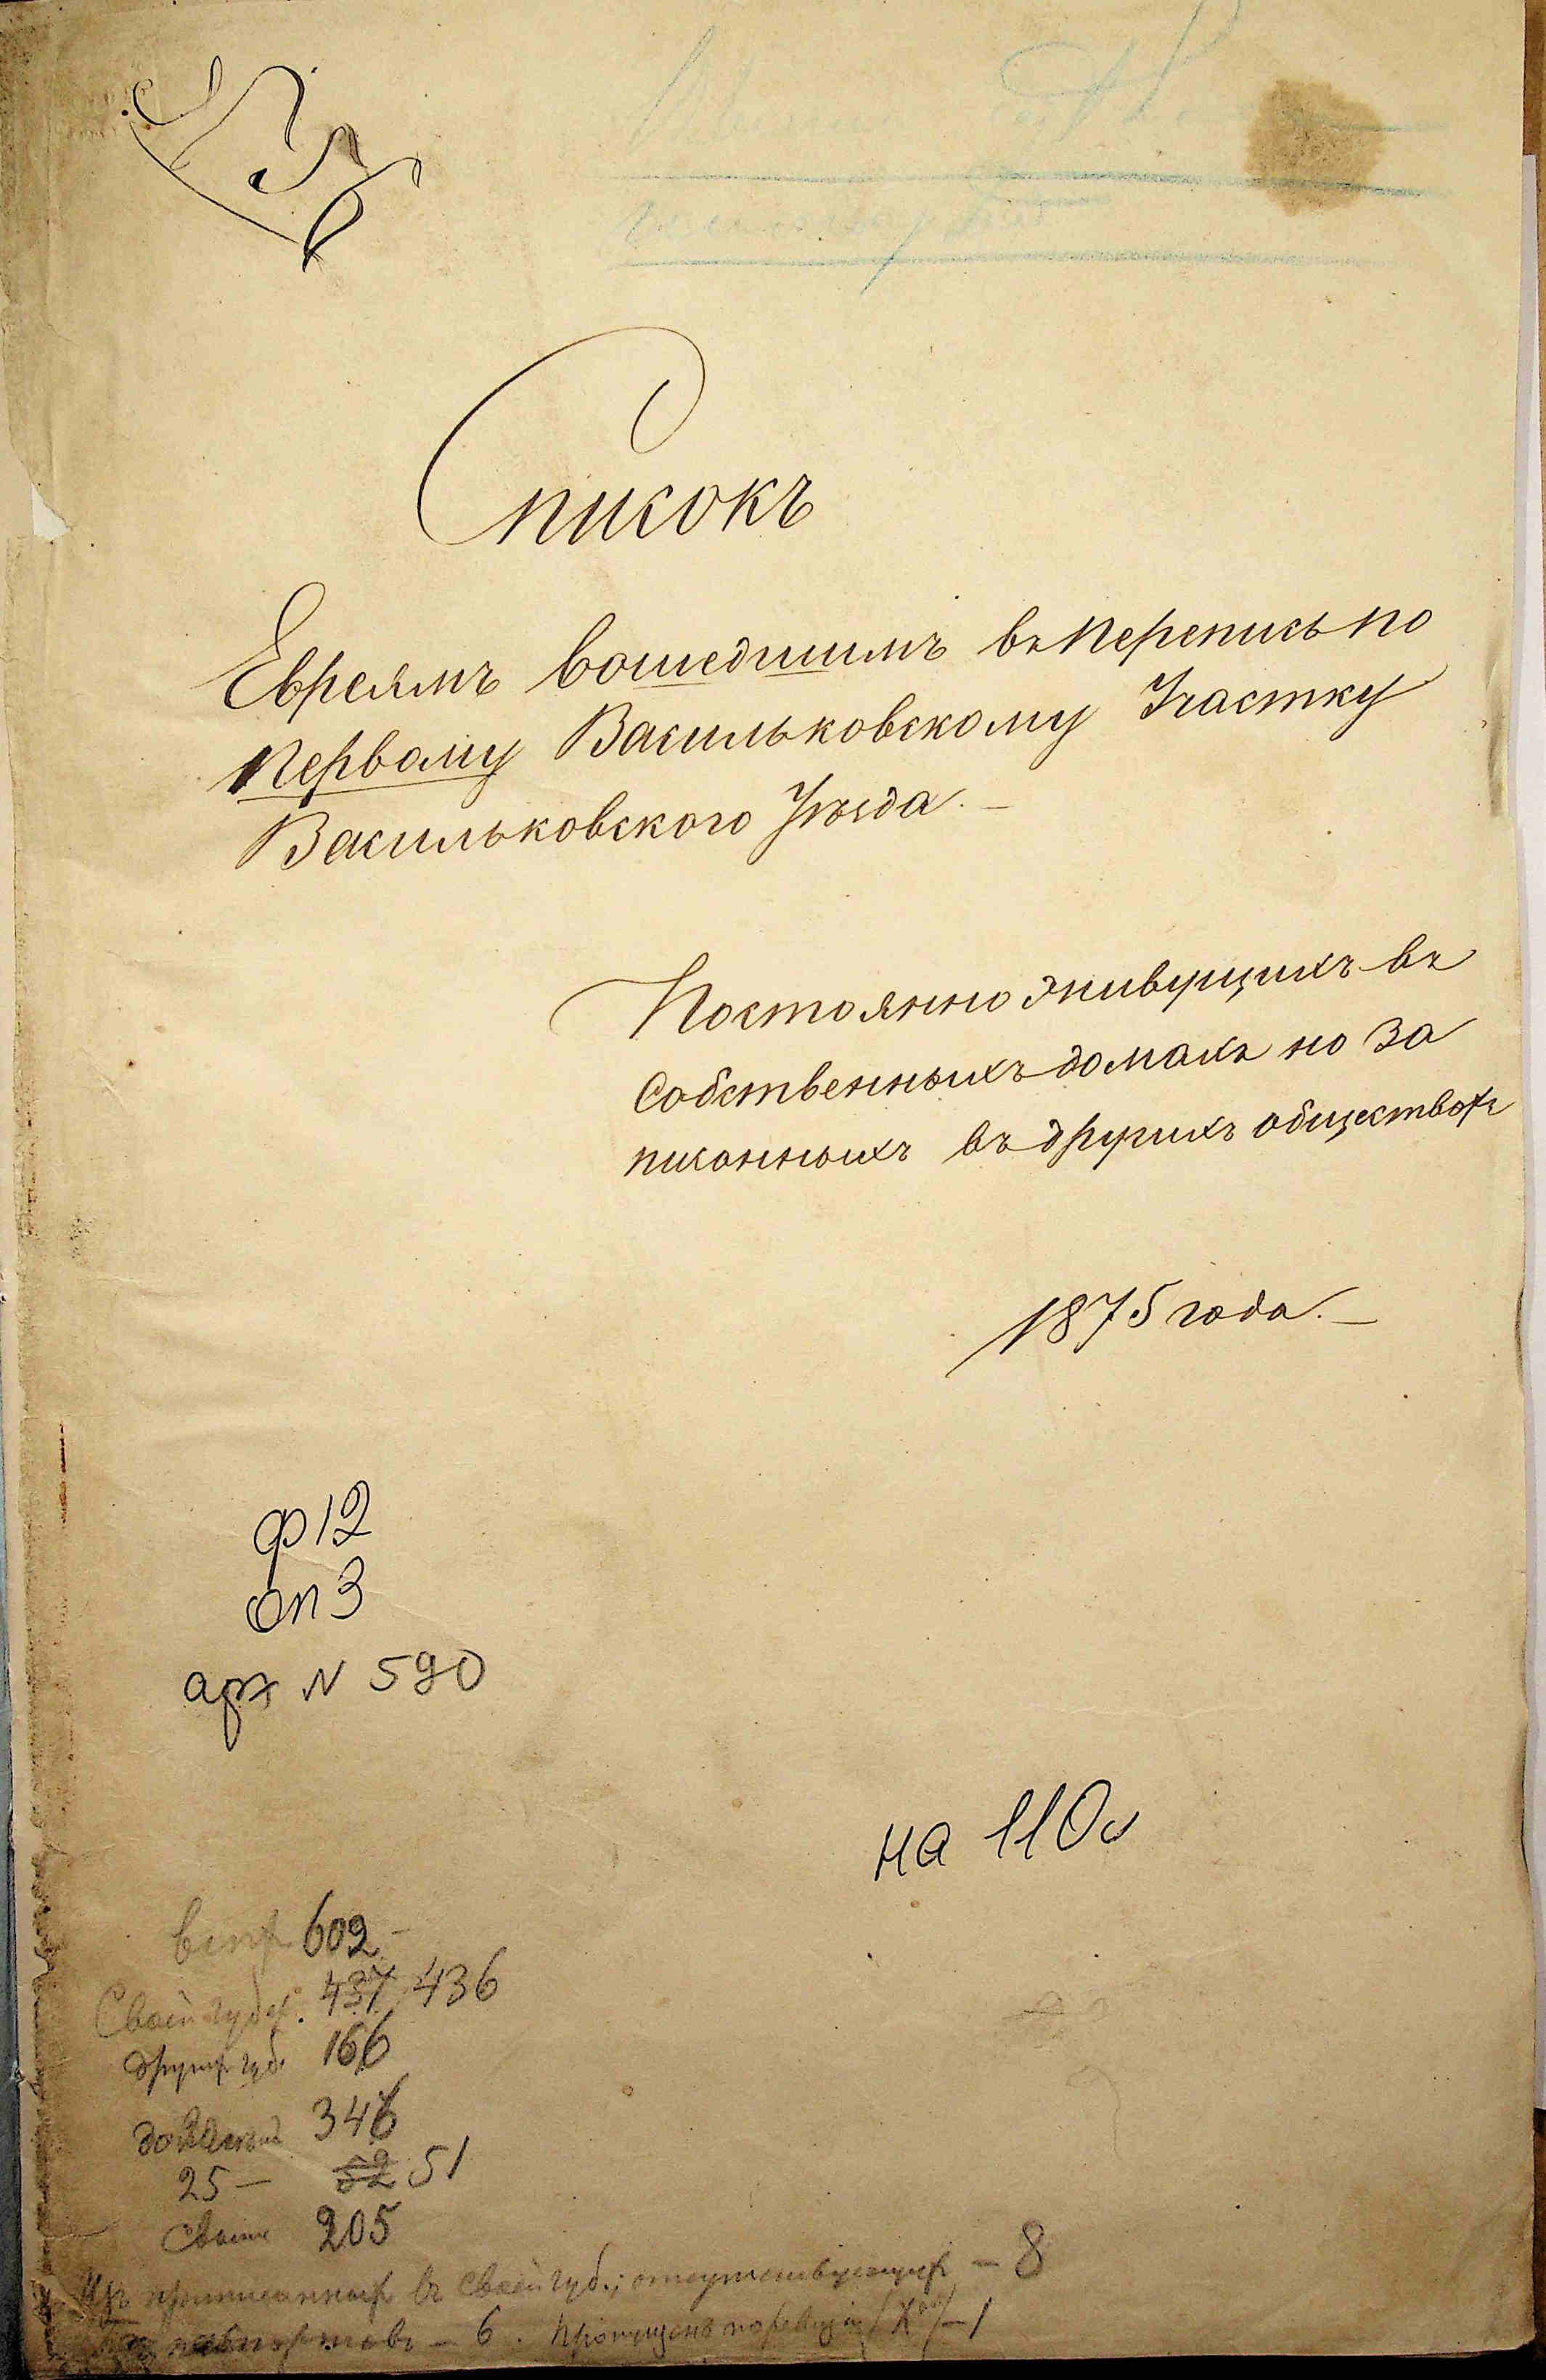 Списокъ
Евреямъ вошедшимъ въ перепись по
Первому Васильковскому Участку
Васильковского Уѣзда. —
Постоянно живущихъ въ
Собственныхъ домахъ но за
писанныхъ въ другихъ обществахъ
1875 года. —
ф 12
оп 3
арх N 590
на 110 л
всѣхъ 602 —
Своей губер. 437 436
другихъ губ. 166
346
25 — 52 51
Свыше 205
приписанныхъ въ своей губ.; отсутствующихъ — 8
— 6. Пропущенъ по ревизіи — 1